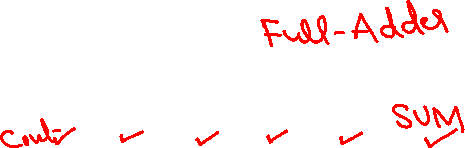 Full-Adder
Cout SUM